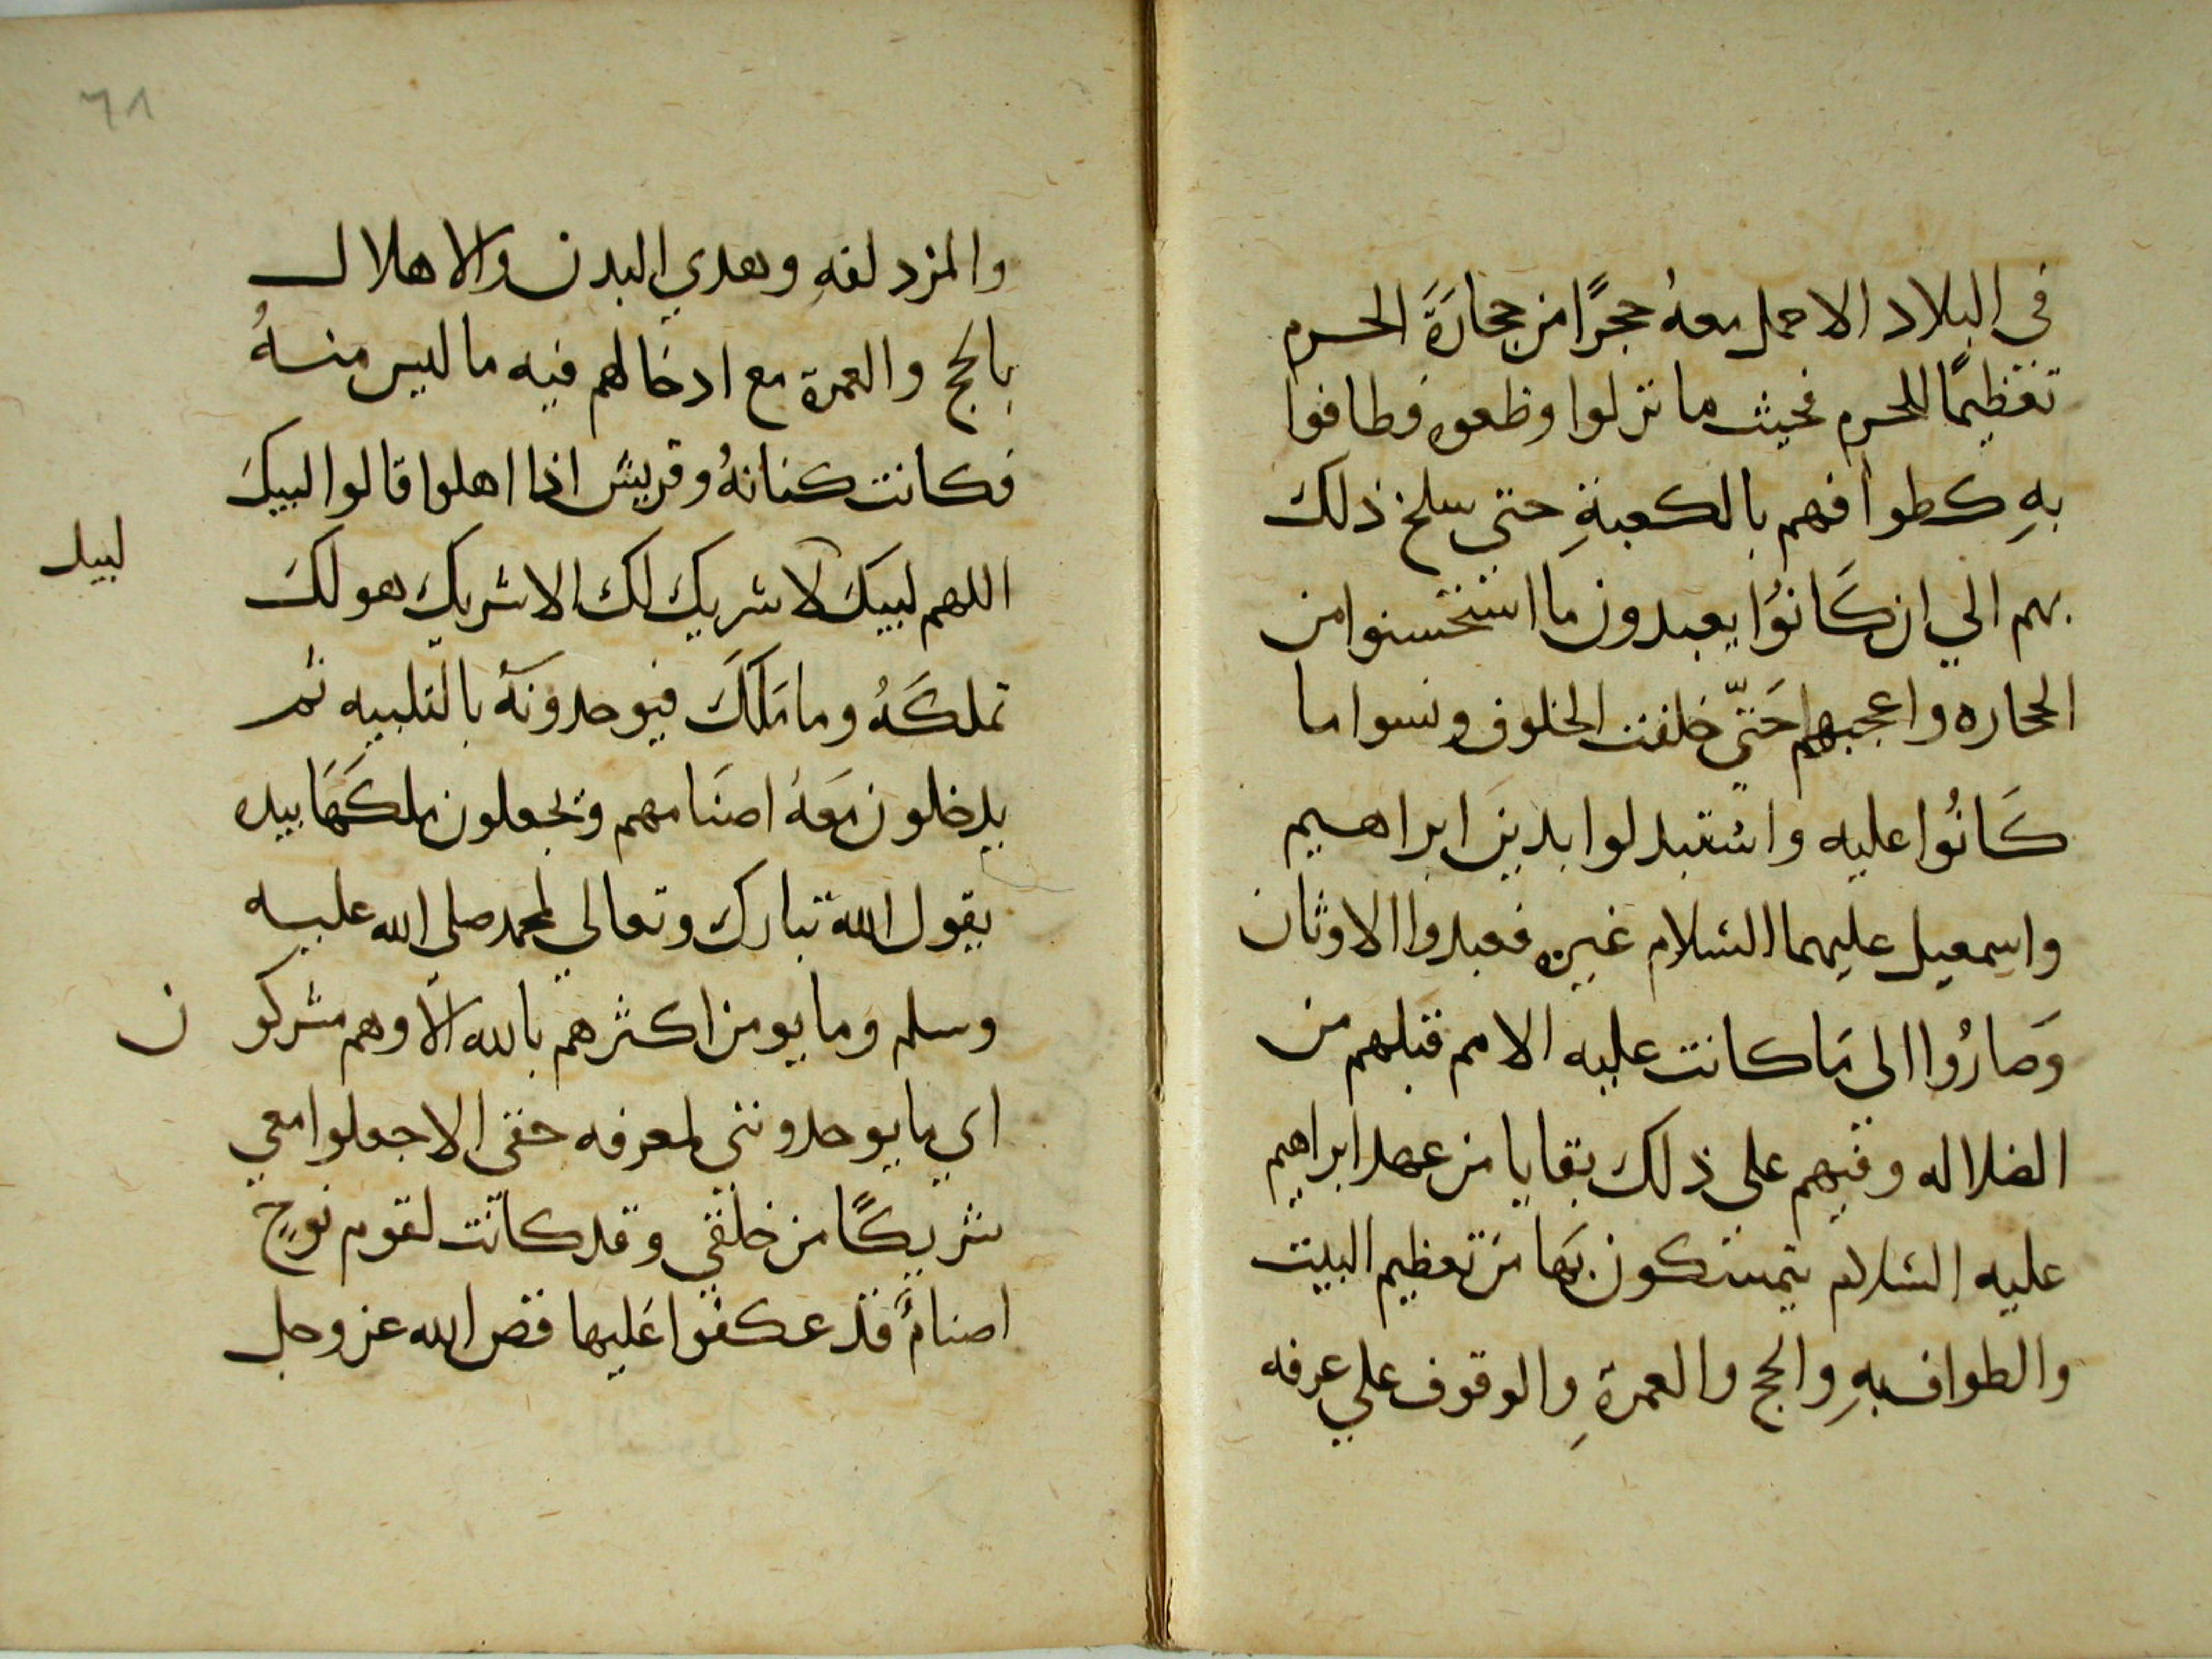 في البلاد الا حمل معهُ حجرًا من حجارَةَ الحرم
تعظيمًا للحرم فحيث ما نزلوا وظعوه فطافوا
بهِ كطوافهم بالكعبةِ حتي سلخ ذلك
بهم الي ان كَانوُا يعبدون ما استحسنوا من
الححاره واعجبهم حَتّي خلفت الخلوف ونسوا ما
كَانُوا عليه واستبدلوا بدين ابراهيم
واسمعيل عليهما السلام غيره فعبدوا الاوثان
وَصارُوا الى مَا كانت عليه الامم قبلهم من
الضلاله وفيهم على ذلك بقايا من عهد ابراهيم
عليه السلام يتمسكون بَها من تعظيم البيت
والطواف بهِ والحج والعمرةِ والوقوف علي عرفه
٦٨
والمزدلفهِ وهدي البدن والاهلال
بالحج والعمرة مع ادخالهم فيه ما ليس منهُ
فكانت كنانهُ وقريش اذا اهلوا قالوا لبيكَ
اللهم لبيكَ لا شريك لك الا شريك هو لكَ
لبيك
تملكَهُ وما مَلكَ فيوحدونَهُ بالتلبيه ثم
يدخلون مَعهُ اصنَامهم ويجعلون ملكَهَا بيده
يقول الله تبارك وتعالي لمحمد صلى الله عليه
وسلم وما يومن اكثرهم بالله الا وهم مشركون
اي ما يوحدونني لمعرفه حقي الا جعلوا معي
شريكًا من خلقي وقد كانت لقوم نوحٍ
اصنامٌ قد عكفوا عَليها قص الله عز وجل